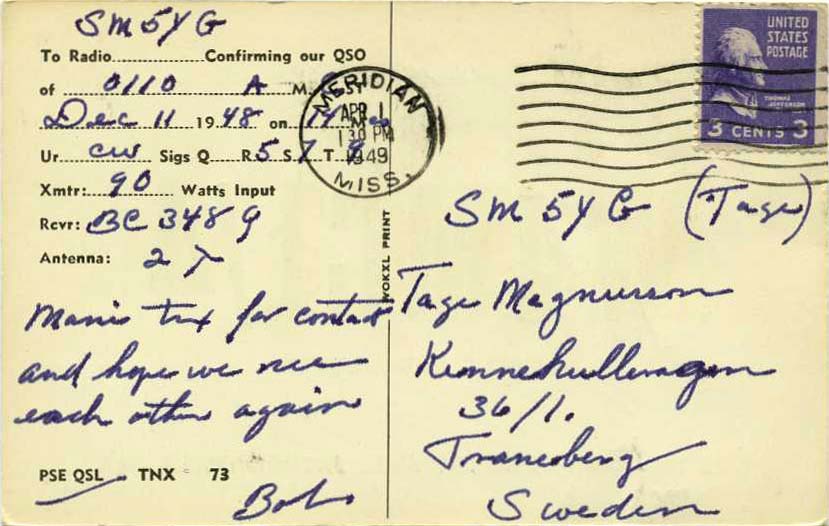 SM5YG
To Radio Confirming our QSO
of 0110 A M. CST
Dec 11 1948 on 14 Mc
Ur CW Sigs Q R 5 S 7 T 9
Xmtr: 90 Watts Input
Rcvr: BC 348 Q
Antenna: 2
Manis tnx for contact
and hope we nee
each other again
PSE QSL TNX 73
Bob
WOKXL PRINT
MERIDIAN
APR 1
1 30 PM
1949
MISS.
UNITED
STATES
POSTAGE
THOMAS
JEFFERSON
3 CENTS 3
SM5YG (Tage)
Tage Magnusson
Kennekullevagen
36/1.
Traneberg
Sweden